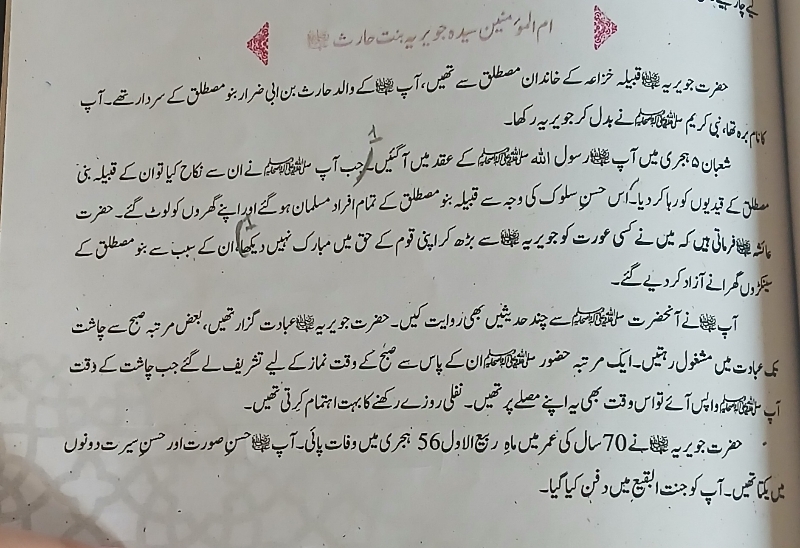 ام المؤمنین سیدہ جویریہ بنت حارث رضی اللہ عنہا
حضرت جویریہ رضی اللہ عنہا قبیلہ خزاعہ کے خاندان مصطلق سے تھیں، آپ رضی اللہ عنہا کے والد حارث بن ابی ضرار بنو مصطلق کے سردار تھے۔ آپ
کا نام برہ تھا، نبی کریم صلی اللہ علیہ وسلم نے بدل کر جویریہ رکھا۔
شعبان ۵ ہجری میں آپ رضی اللہ عنہا رسول اللہ صلی اللہ علیہ وسلم کے عقد میں آ گئیں۔ جب آپ صلی اللہ علیہ وسلم نے ان سے نکاح کیا تو ان کے قبیلہ بنی
مصطلق کے قیدیوں کو رہا کر دیا۔ اس حسنِ سلوک کی وجہ سے قبیلہ بنو مصطلق کے تمام افراد مسلمان ہو گئے اور اپنے گھروں کو لوٹ گئے۔ حضرت
عائشہ رضی اللہ عنہا فرماتی ہیں کہ میں نے کسی عورت کو جویریہ رضی اللہ عنہا سے بڑھ کر اپنی قوم کے حق میں مبارک نہیں دیکھا، ان کے سبب سے بنو مصطلق کے
سینکڑوں گھرانے آزاد کر دیے گئے۔
آپ رضی اللہ عنہا نے آنحضرت صلی اللہ علیہ وسلم سے چند حدیثیں بھی روایت کیں۔ حضرت جویریہ رضی اللہ عنہا عبادت گزار تھیں، بعض مرتبہ صبح سے چاشت
تک عبادت میں مشغول رہتیں۔ ایک مرتبہ حضور صلی اللہ علیہ وسلم ان کے پاس سے صبح کے وقت نماز کے لیے تشریف لے گئے جب چاشت کے وقت
آپ صلی اللہ علیہ وسلم واپس آئے تو اس وقت بھی یہ اپنے مصلے پر تھیں۔ نفلی روزے رکھنے کا بہت اہتمام کرتی تھیں۔
حضرت جویریہ رضی اللہ عنہا نے 70 سال کی عمر میں ماہِ ربیع الاول 56 ہجری میں وفات پائی۔ آپ رضی اللہ عنہا حسنِ صورت اور حسنِ سیرت دونوں
میں یکتا تھیں۔ آپ کو جنت البقیع میں دفن کیا گیا۔